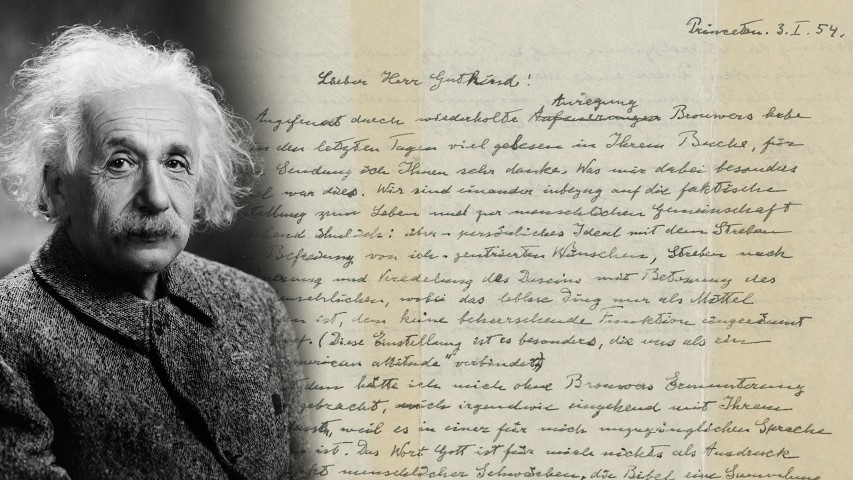 Princeton. 3. I. 54.
Lieber Herr Gutkind!
Anregung
Angefeuert durch wiederholte Brouwers habe
den letzten Tagen viel gelesen in Ihrem Buche, für
Sendung ich Ihnen sehr danke. Was mir dabei besonders
war dies. Wir sind einander inbezug auf die faktische
stellung zum Leben und zur menschlichen Gemeinschaft
hend ähnlich: über-persönliches Ideal mit dem Streben
Befreiung von ich-zentrierten Wünschen, Streben nach
erung und Veredelung des Daseins mit Betonung des
nschlichen, wobei das leblose Ding nur als Mittel
ist, dem keine beherrschende Funktion eingeräumt
(Diese Einstellung ist es besonders, die uns als ein
merican attitude" verbindet)
dem hätte ich mich ohne Brouwers Ermunterung
gebracht, mich irgendwie eingehend mit Ihrem
weil es in einer für mich unzugänglichen Sprache
ist. Das Wort Gott ist für mich nichts als Ausdruck
menschlicher Schwächen, die Bibel eine Sammlung